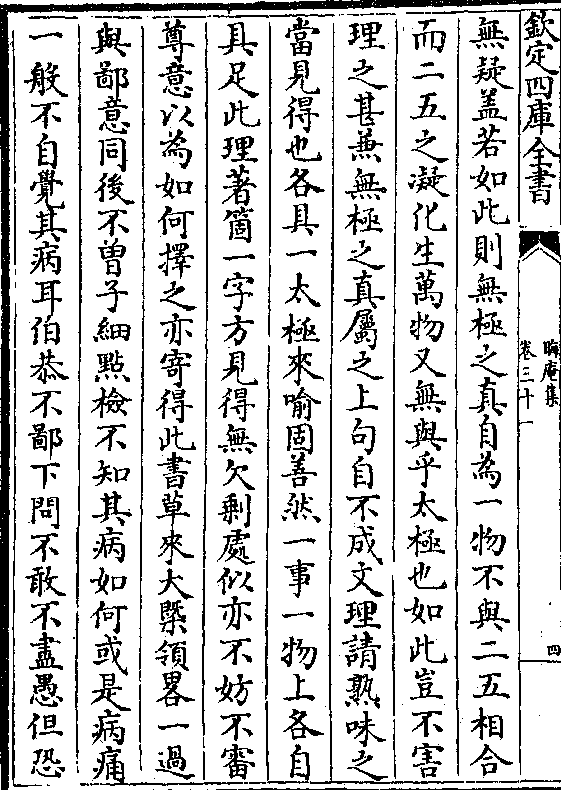 欽定四庫全書
晦庵集
卷三十一
四
無疑葢若如此則無極之真自為一物不與二五相合
而二五之凝化生萬物又無與乎太極也如此豈不害
理之甚兼無極之真屬之上句自不成文理請熟味之
當見得也各具一太極來喻固善然一事一物上各自
具足此理著箇一字方見得無欠剩處似亦不妨不審
尊意以為如何擇之亦寄得此書草來大槩領畧一過
與鄙意同後不曽子細點檢不知其病如何或是病痛
一般不自覺其病耳伯恭不鄙下問不敢不盡愚但恐